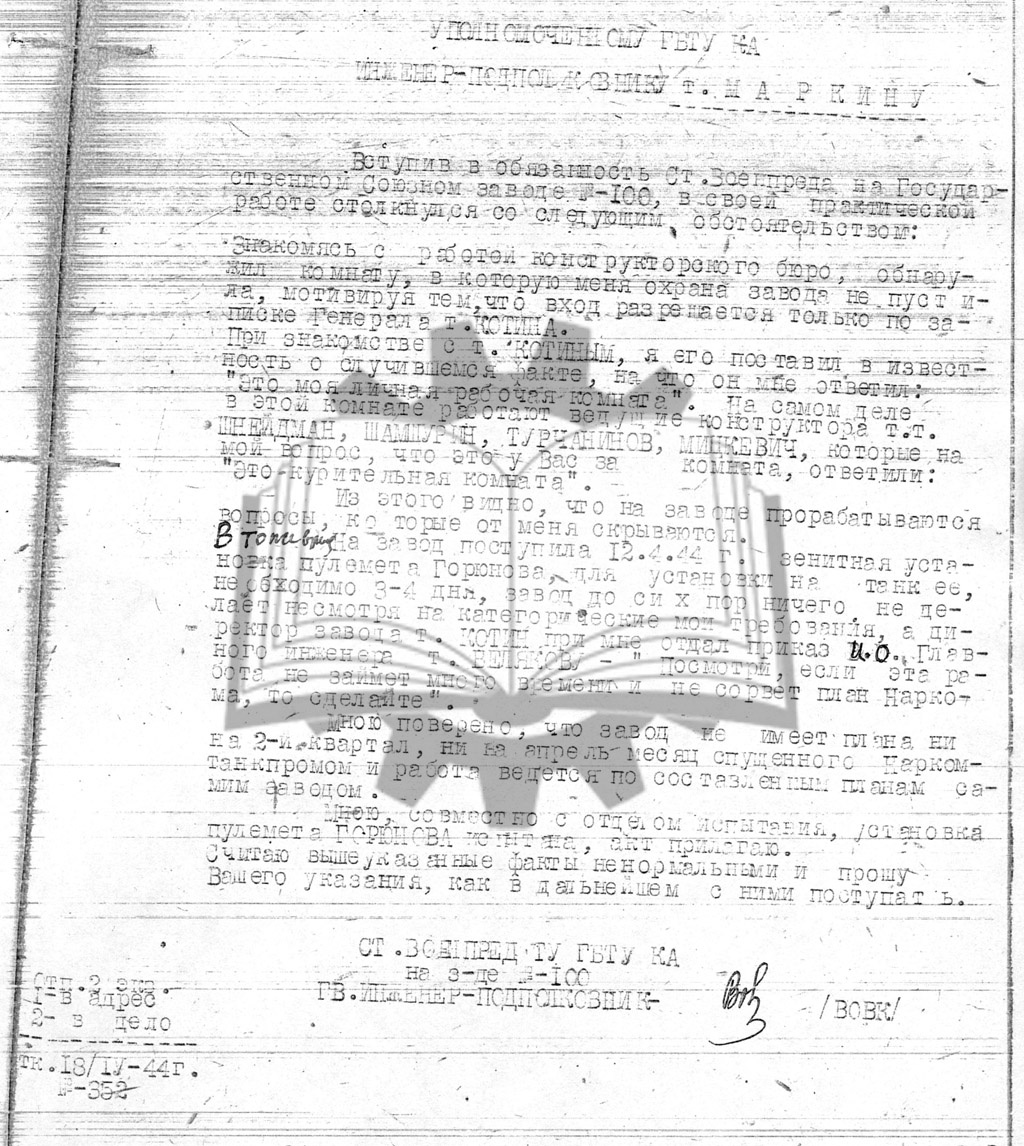 УПОЛНОМОЧЕННОМУ ГБТУ КА
ИНЖЕНЕР-ПОДПОЛКОВНИКУ т. М А Р К И Н У
Вступив в обязанность Ст.Военпреда на Государ-
ственной Союзном заводе №-100, в своей практической
работе столкнулся со следующим обстоятельством:
Знакомясь с работой конструкторского бюро, обнару-
жил комнату, в которую меня охрана завода не пуст и-
ла, мотивируя тем,что вход разрешается только по за-
писке Генерала т.КОТИНА.
При знакомстве с т. КОТИНЫМ, я его поставил в извест-
ность о случившемся факте, на что он мне ответил:
"Это моя личная рабочая комната". На самом деле
в этой комнате работают ведущие конструктора т.т.
ШНЕЙДМАН, ШАМШУРИН, ТУРЧАНИНОВ, МИЦКЕВИЧ, которые на
мой вопрос, что это у Вас за комната, ответили:
"Это курительная комната".
Из этого видно, что на заводе прорабатываются
вопросы, ко торые от меня скрываются.
На завод поступила 12.4.44 г. зенитная уста-
новка пулемета Горюнова, для установки на танк ее,
необходимо 3-4 дня, завод до си х пор ничего не де-
лает несмотря на категорические мои требования, а ди-
ректор завода т. КОТИН при мне отдал приказ И.О. Глав-
ного инженера т. БЕЛЯКОВУ - " Посмотри, если эта ра-
бота не займет много времени и не сорвет план Нарко-
ма, то сделайте".
Мною поверено, что завод не имеет плана ни
на 2-й квартал, ни на апрель месяц спущенного Нарком-
танкпромом и работа ведется по составленным планам са-
мим заводом.
Мною, совместно с отделом испытания, установка
пулемета ГОРЮНОВА испытана, акт прилагаю.
Считаю вышеуказанные факты ненормальными и прошу
Вашего указания, как в дальнейшем с ними поступат ь.
СТ.ВОЕНПРЕД ТУ ГБТУ КА
на з-де №-100
ГВ.ИНЖЕНЕР-ПОДПОЛКОВНИК- /ВОВК/
Отп.2 экз.
1-в адрес
2- в дело
тк.18/IУ-44г.
№-352